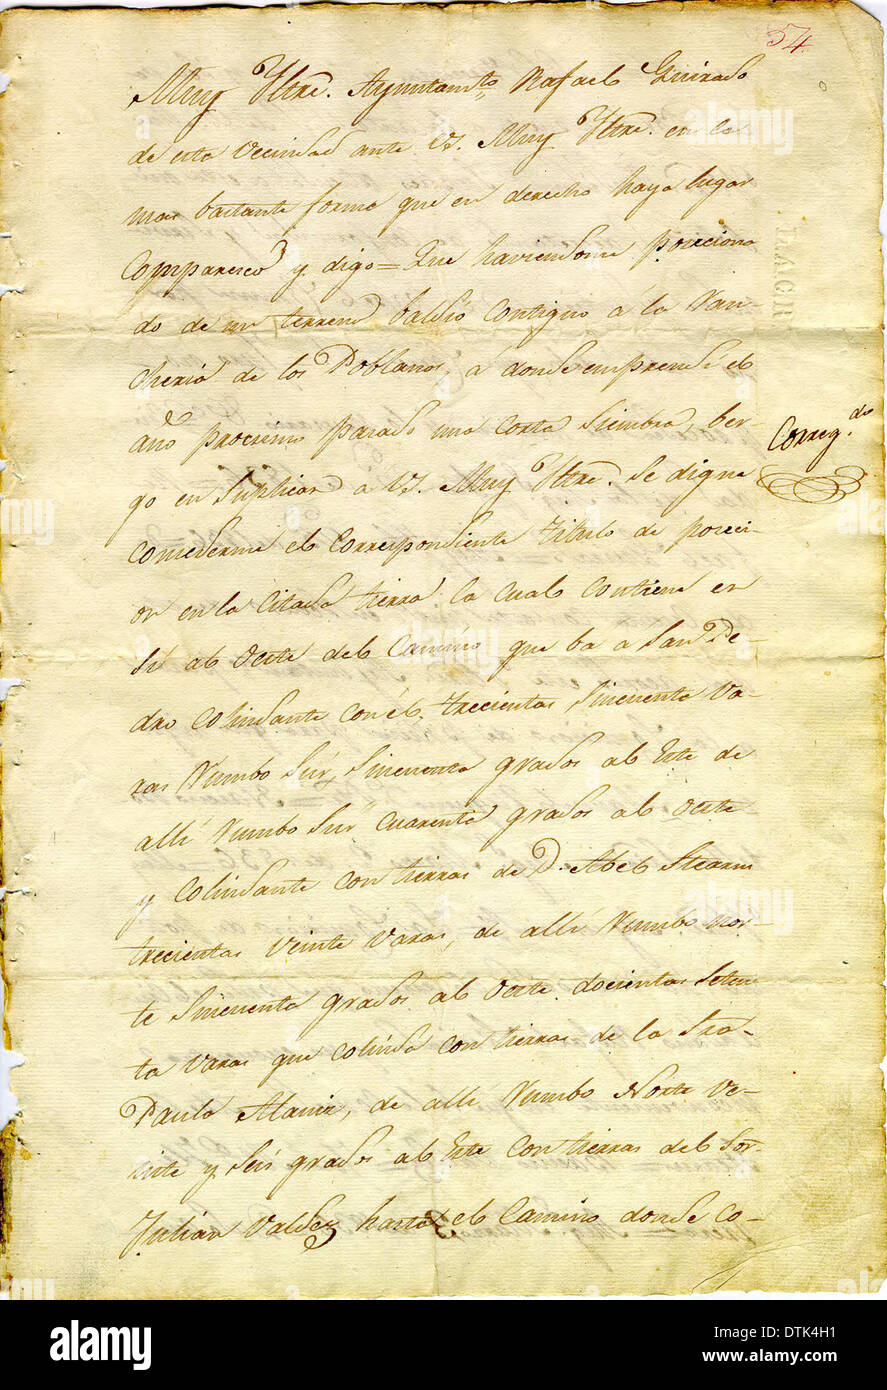 54
Muy Yltre. Ayuntamto. Rafael Guirado
de esta vecindad ante VS. Muy Yltre. en la
mas bastante forma que en derecho haya lugar
comparesco y digo = Que haviendome poseciona
do de un terreno baldio contiguo á la Ran-
cheria de los Poblanos, á donde emprendí el
año procsimo pasado una corta siembra, ben-
go en suplicar á VS. Muy Yltre. se digne
consederme el correspondiente titulo de poseci-
on en la citada tierra la cual contiene en
sí al Oeste del Camino que ba a San Pe-
dro colindante con él, trecientas sincuenta va-
ras Rumbo Sur, sincuenta grados al Este de
allí Rumbo Sur cuarenta grados al Oeste
y colindante con tierras de D. Abel Stearns
trecientas veinte varas, de allí Rumbo Nor-
te sincuenta grados al Oeste docientas seten
ta varas que colinda con tierras de la Sra.
Paula de allí Rumbo Norte ve-
inte y seis grados al Este con tierras del Sor.
Julián Valdez hasta el Camino donde co-
Correg.do
LACR
alamy
Image ID: DTK4H1
www.alamy.com